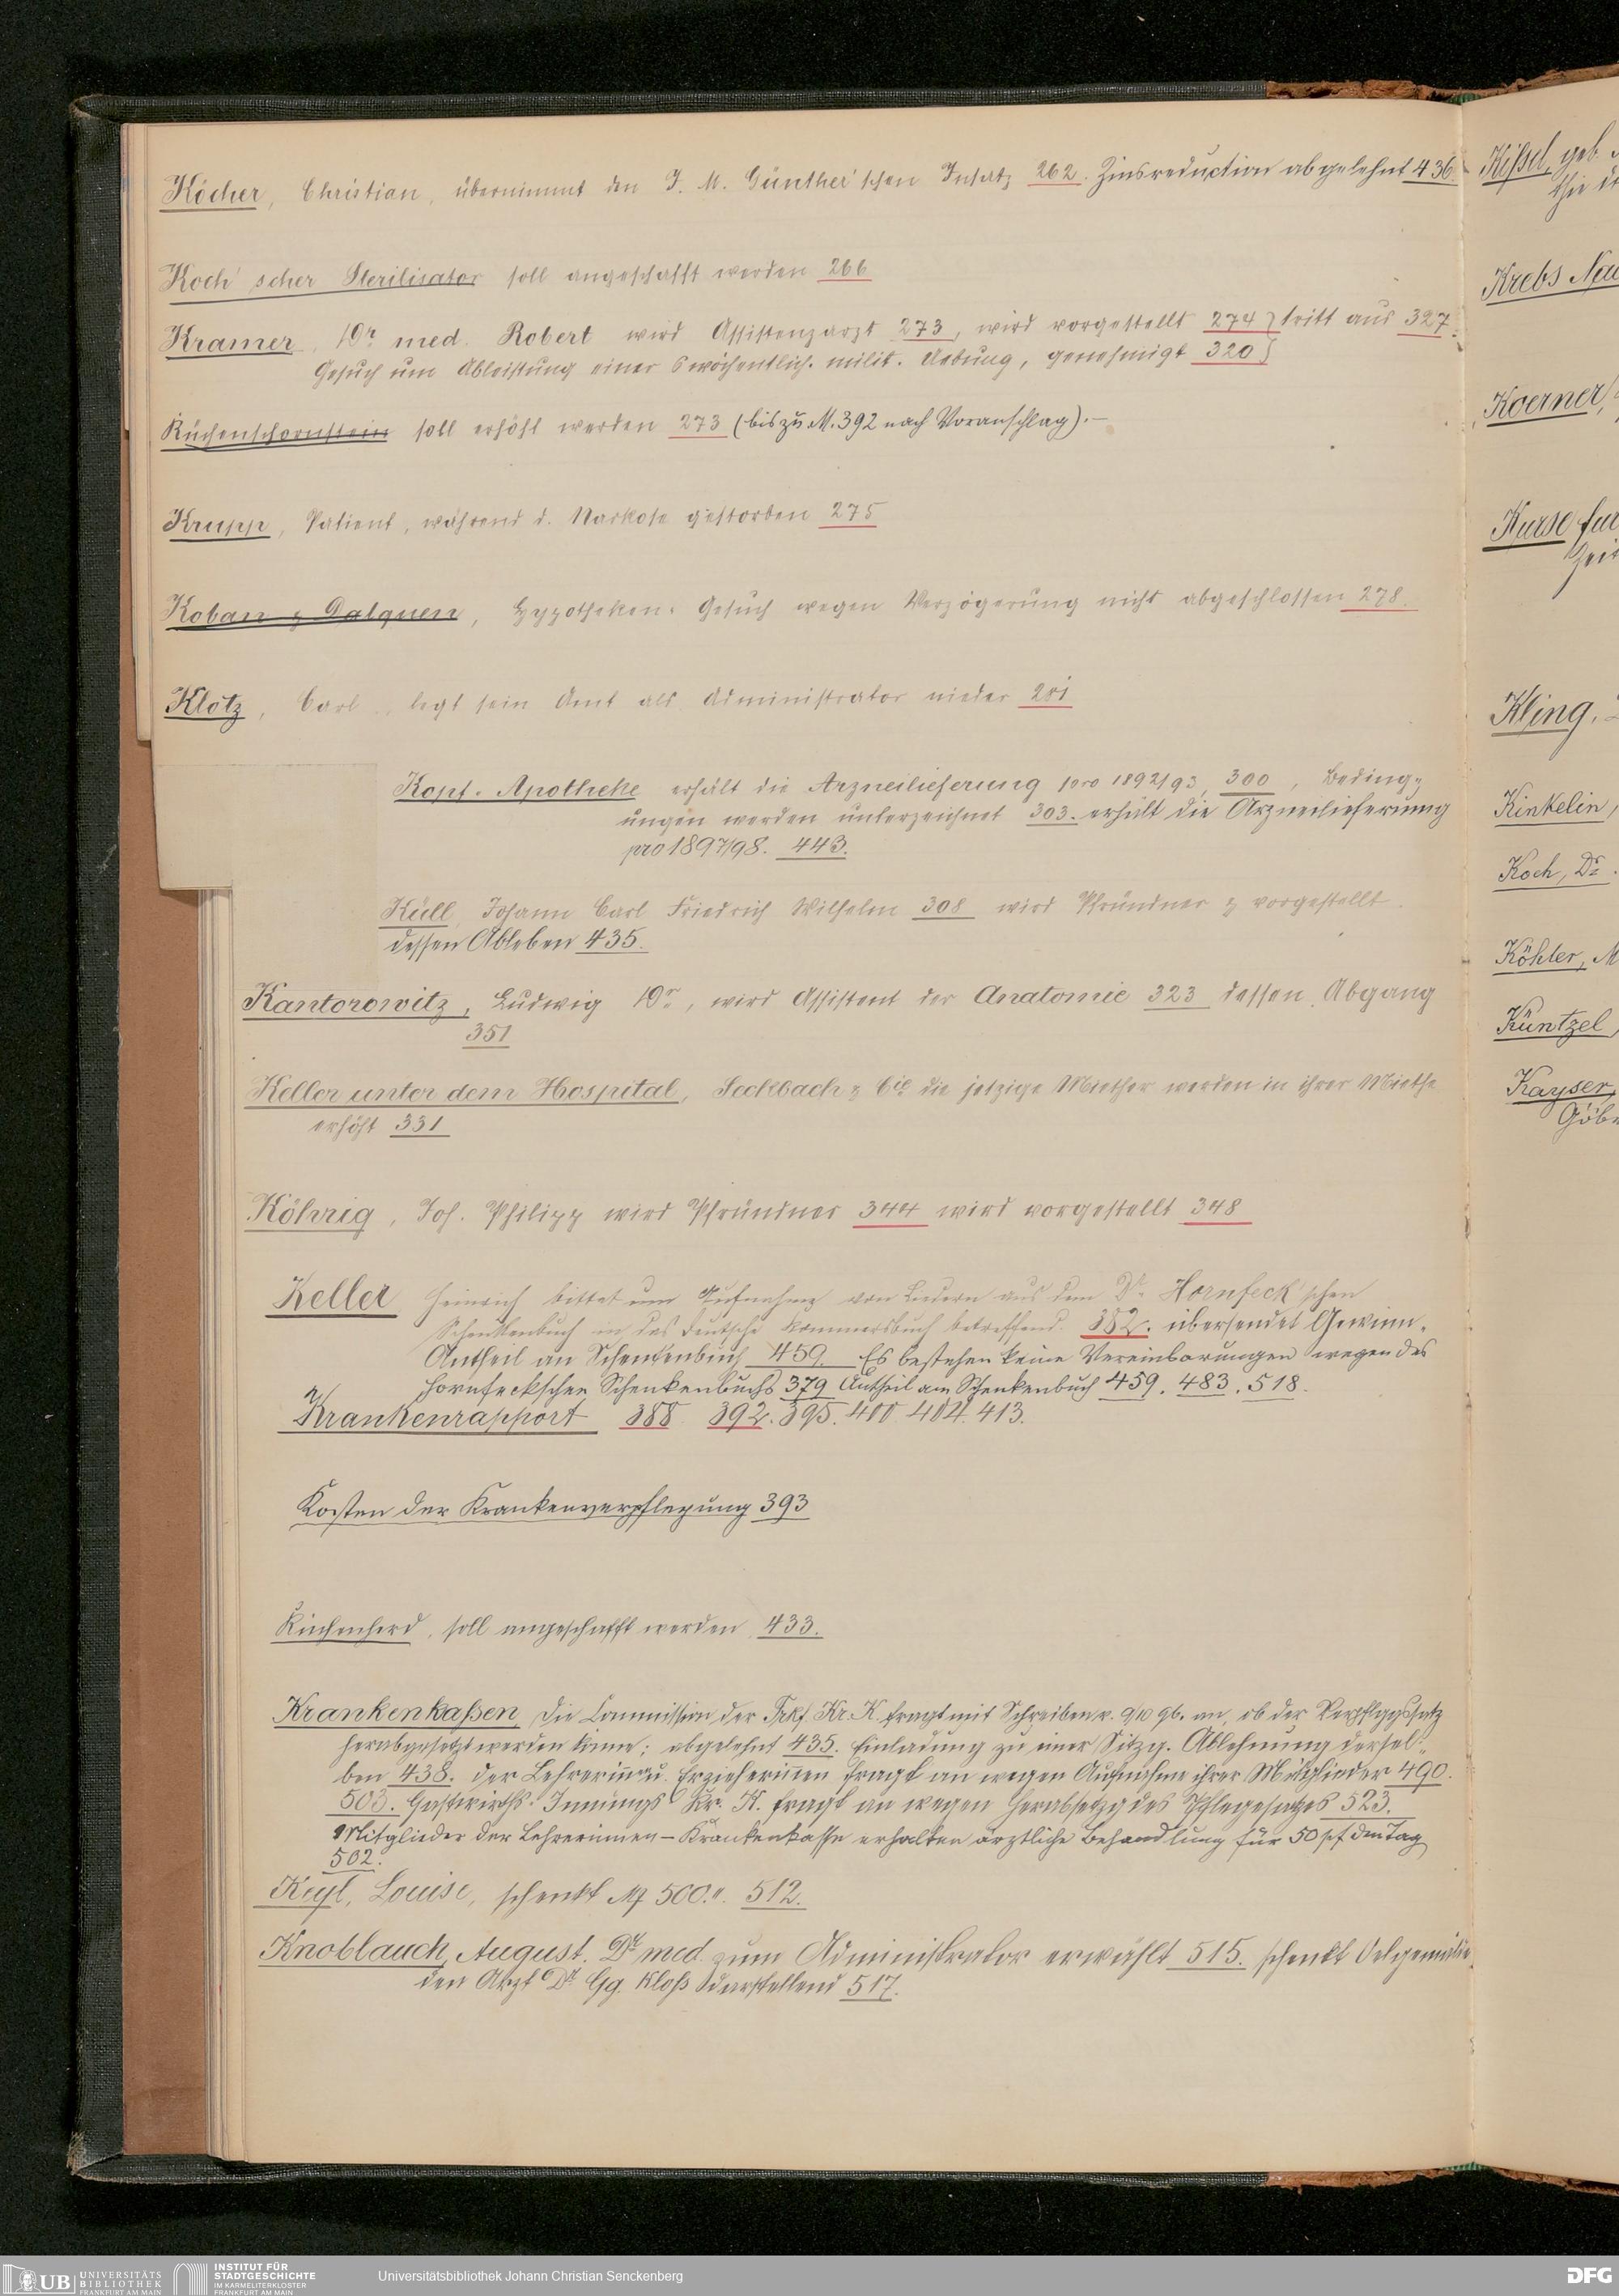 Köcher, Christian, übernimmt den J. M. Günther'schen Insatz 262. Zinsreduction abgelehnt 436.
Koch'scher Sterilisator soll angeschafft werden 266
Kramer, Dr med. Robert wird Assistenzarzt 273, wird vorgestellt 274 } tritt aus 327.
Gesuch um Ableistung einer 6 wöchentlich. milit. Uebung, genehmigt 320 }
Küchenschornstein soll erhöht werden 273 (bis zu M. 392 nach Voranschlag). –
Krupp, Patient, während d. Narkose gestorben 275
Koban & Dalquen, Hypotheken-Gesuch wegen Verzögerung nicht abgeschlossen 278.
Klotz, Carl, legt sein Amt als Administrator nieder 281
Kopf-Apotheke erhält die Arzneilieferung pro 1892/93, 300, Beding-
ungen werden unterzeichnet 303. erhält die Arzneilieferung
pro 1897/98. 443.
Küll Johann Carl Friedrich Wilhelm 308 wird Pfründner & vorgestellt.
dessen Ableben 435.
Kantorowitz, Ludwig Dr, wird Assistent der Anatomie 323 dessen Abgang
351
Keller unter dem Hospital, Seckbach & Cie die jetzige Miether werden in ihrer Miethe
erhöht 331
Köhrig, Joh. Philipp wird Pfründner 344 wird vorgestellt 348
Keller Heinrich bittet um Aufnahme von Liedern aus dem Dr. Hornfeck'schen
Schenkenbuch in das deutsche Kommersbuch betreffend. 382. übersendet Gewinn-
Antheil an Schenkenbuch 459. Es bestehen keine Vereinbarungen wegen des
Hornfeckschen Schenkenbuchs 379 Antheil am Schenkenbuch 459. 483. 518.
Krankenrapport 388 392. 395. 400. 404. 413.
Kosten der Krankenverpflegung 393
Küchenherd, soll angeschafft werden 433.
Krankenkaßen, Die Commission der Frkf. Kr. K. fragt mit Schreiben v. 9/10 an, ob der Verpflggssatz
herabgesetzt werden könne; abgelehnt 435. Einladung zu einer Sitzg. Ablehnung dersel-
ben 438. der Lehrerin̅en u. Erzieherin̅en fragt an wegen Aufnahme ihrer Mitglieder 490.
503. Gastwirths-Innungs Kr. K. fragt an wegen Herabsetzg des Pflegesatzes 523.
Mitglieder der Lehrerinnen-Krankenkasse erhalten ärztliche Behandlung für 50 pf den Tag
502.
Keyl, Louise, schenkt M 500.". 512.
Knoblauch, August. Dr. med. zum Administrator erwählt 515. schenkt Oelgemälde
den Arzt Dr. Gg. Kloß darstellend 517.
Kißel, geb.
Krebs
Koerner,
Kurse für
Kling,
Kinkelin,
Koch, Dr.
Köhler, M
Küntzel,
Kayser,
UB UNIVERSITÄTS
BIBLIOTHEK
FRANKFURT AM MAIN
INSTITUT FÜR
STADTGESCHICHTE
IM KARMELITERKLOSTER
FRANKFURT AM MAIN
Universitätsbibliothek Johann Christian Senckenberg
DFG